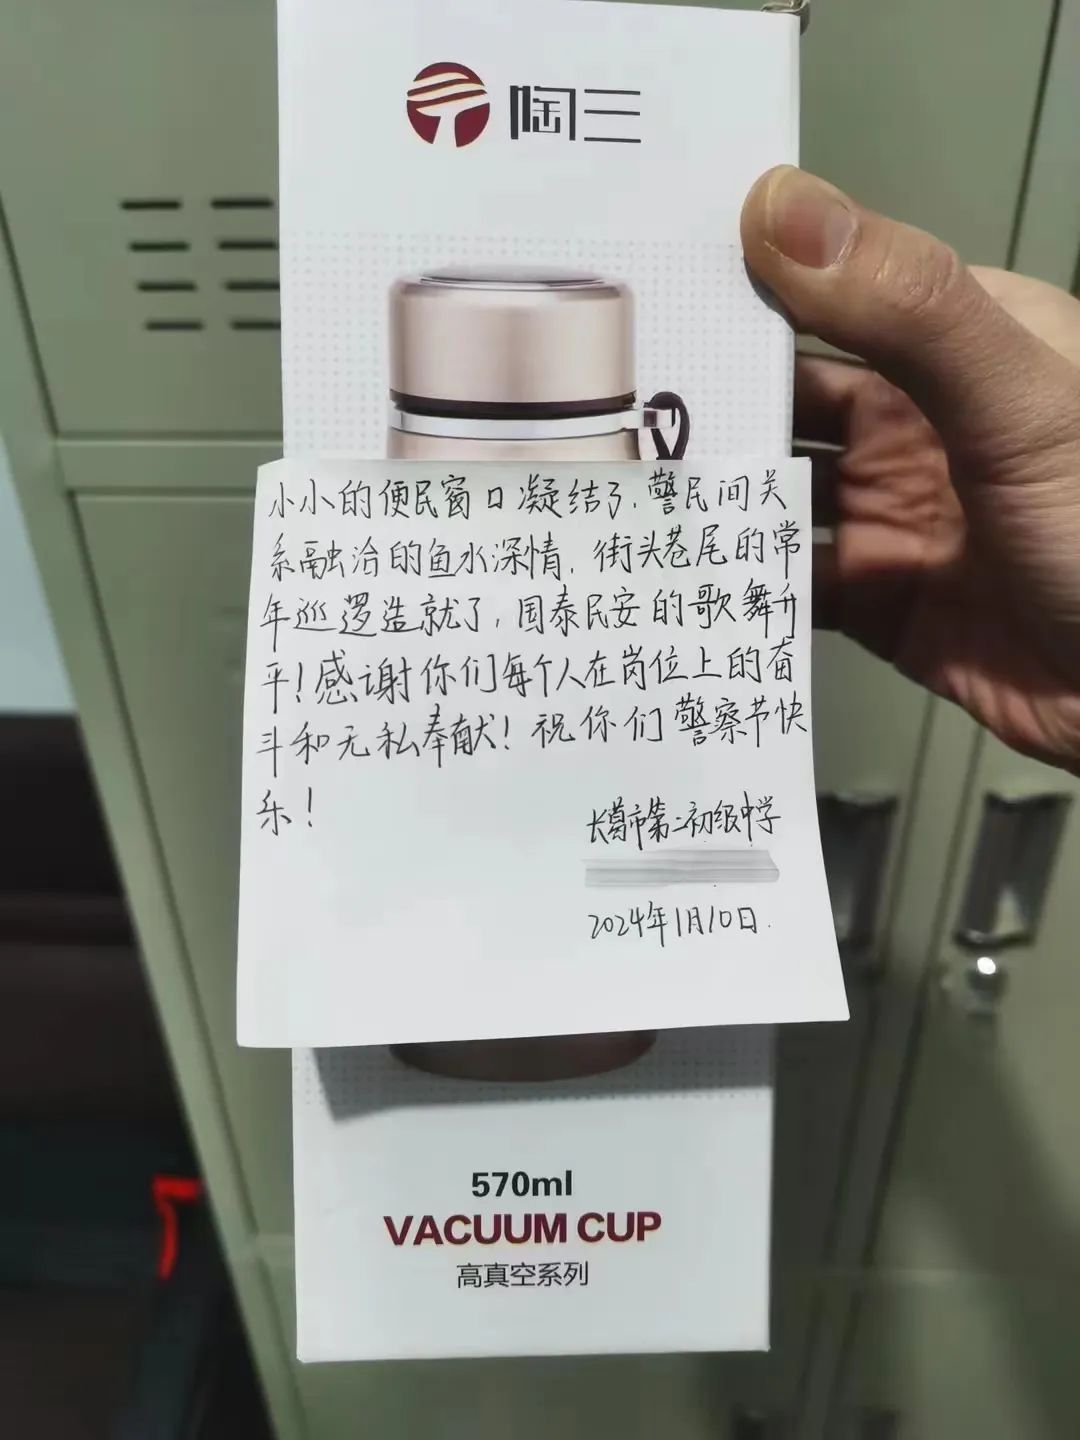 陶三
小小的便民窗口凝结了,警民间关
系融洽的鱼水深情,街头巷尾的常
年巡逻造就了,国泰民安的歌舞升
平!感谢你们每个人在岗位上的奋
斗和无私奉献!祝你们警察节快
乐!
长葛市第二初级中学
2024年1月10日.
570ml
VACUUM CUP
高真空系列